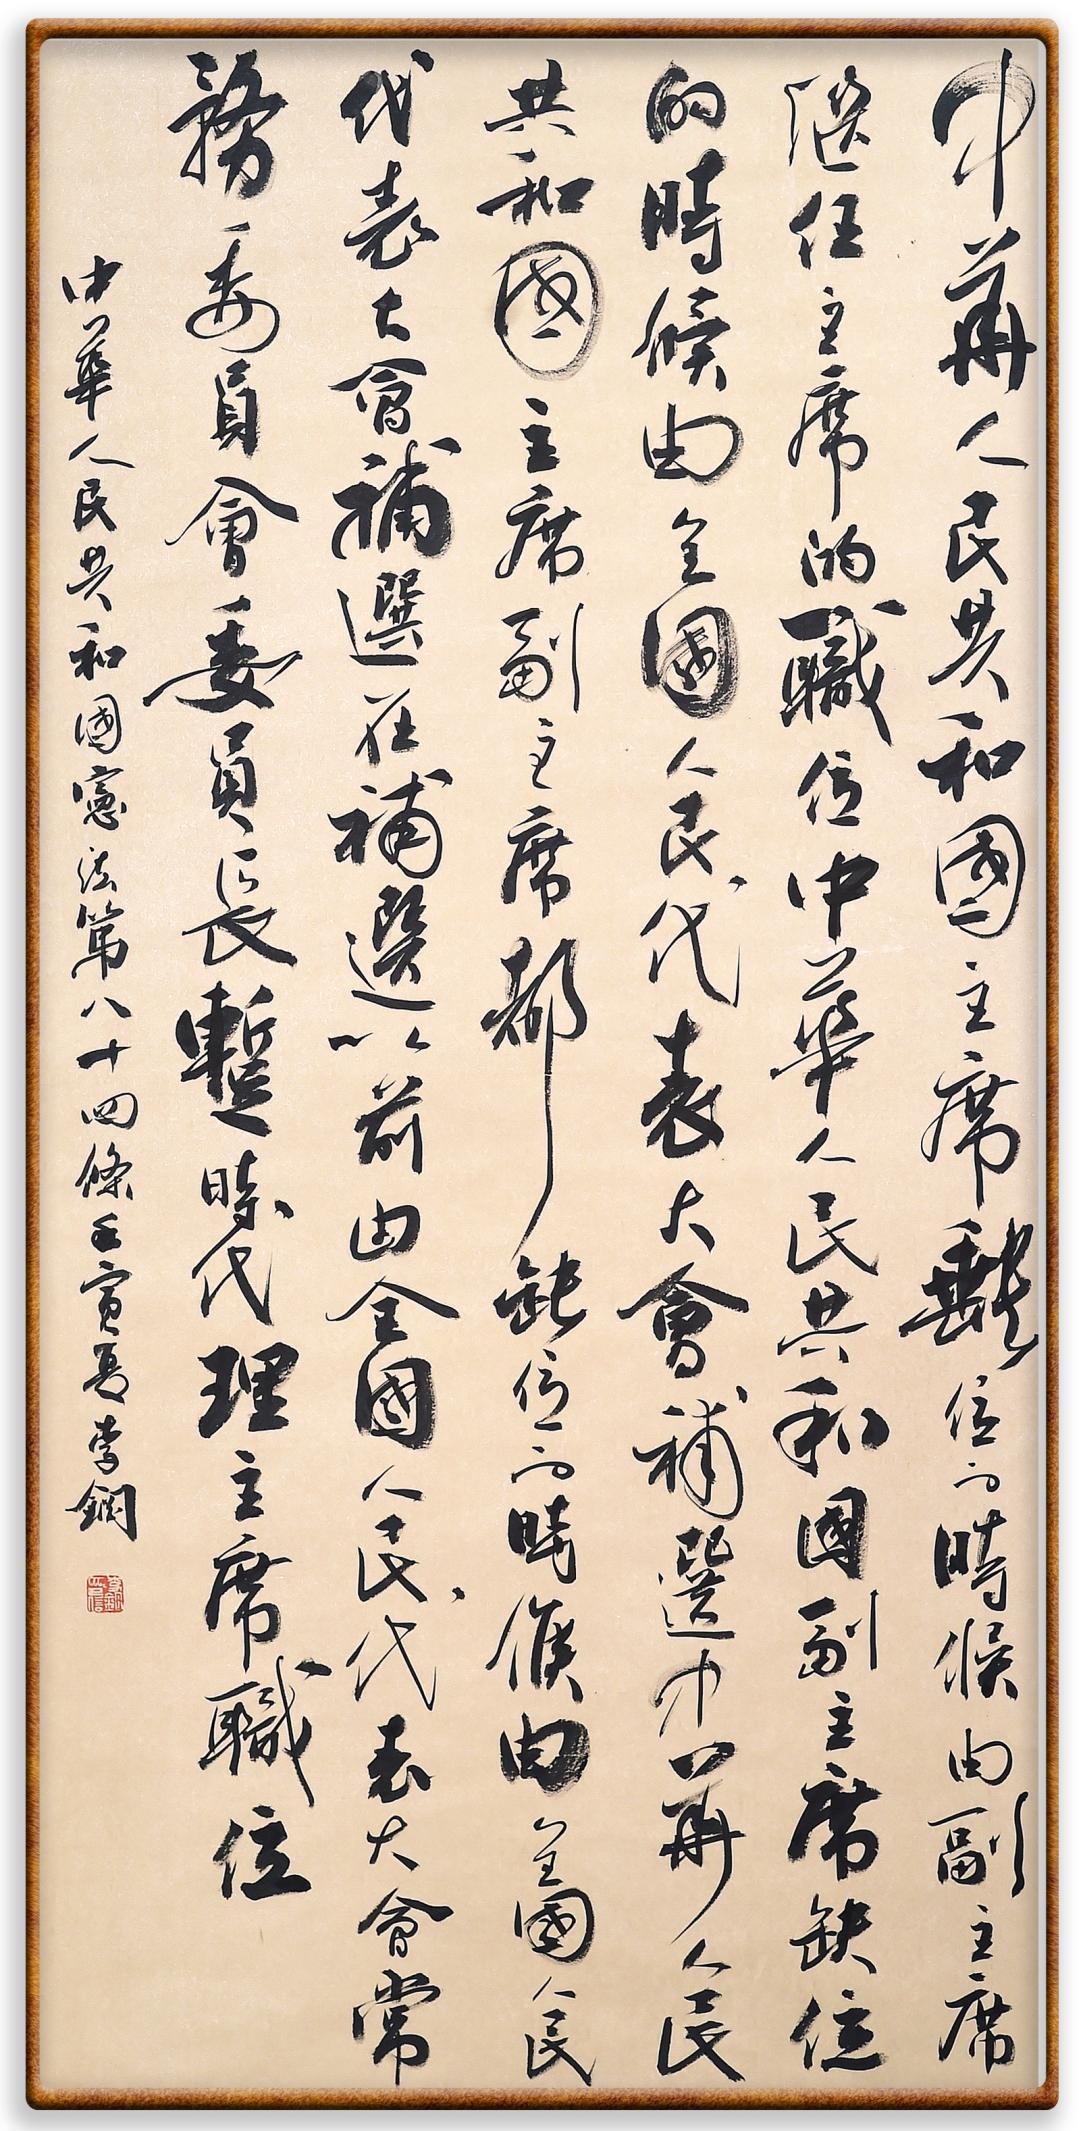 中華人民共和國主席缺位的時候由副主席
繼任主席的職位中華人民共和國副主席缺位
的時候由全國人民代表大會補選中華人民
共和國主席副主席都缺位的時候由全國人民
代表大會補選在補選以前由全國人民代表大會常
務委員會委員長暫時代理主席職位
中華人民共和國憲法第八十四條壬寅夏李鋼